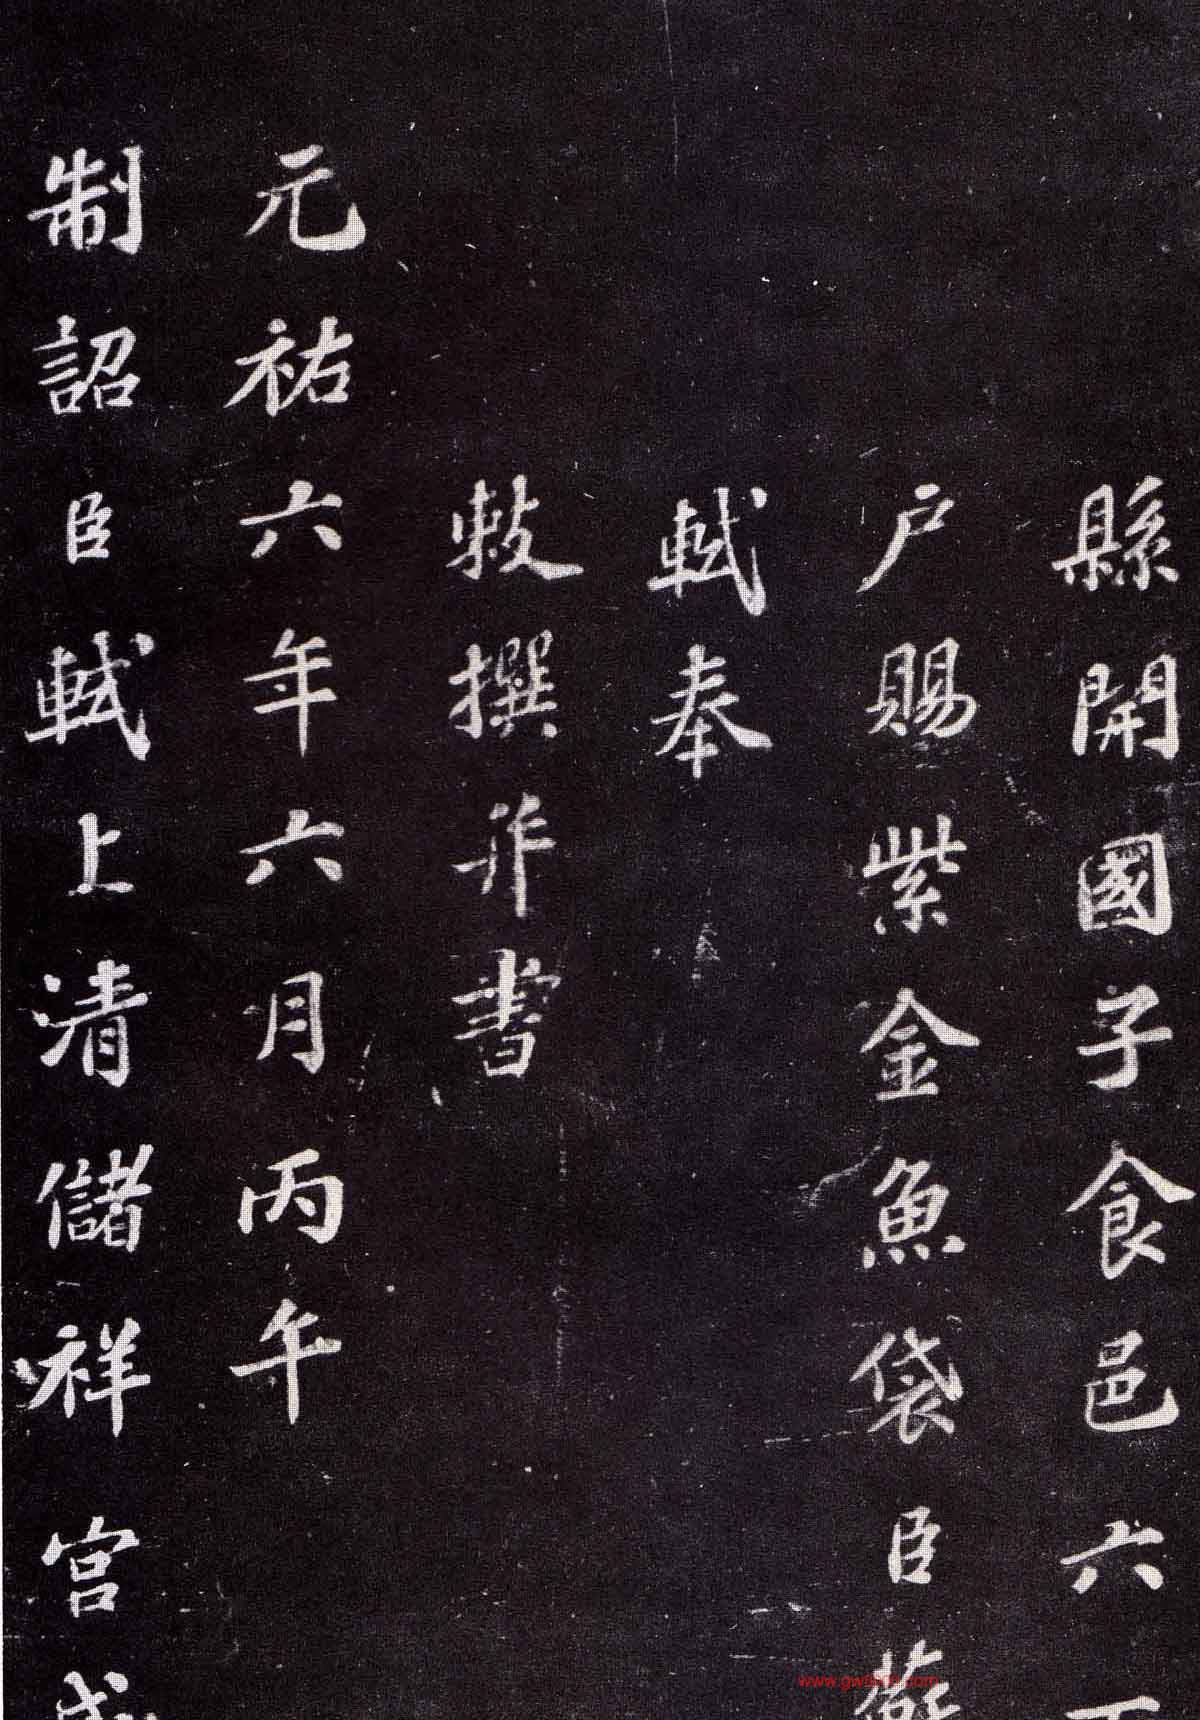 縣開國子食邑六百
户賜紫金魚袋臣蘇
軾奉
敕撰并書
元祐六年六月丙午
制詔臣軾上清儲祥宮成